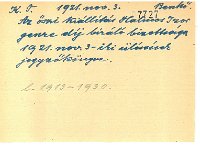 K. I. 1921. nov. 3. Benkő.
Az őszi kiállítás Halmos Izor
genre díj bíráló bizottsága
1921. nov. 3-iki ülésének
jegyzőkönyve.
l. 1913-1930.